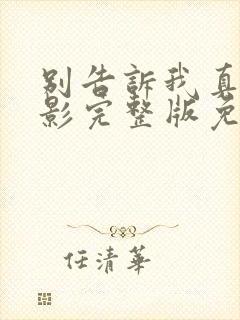 别告訴我真
影完整版免
任清華